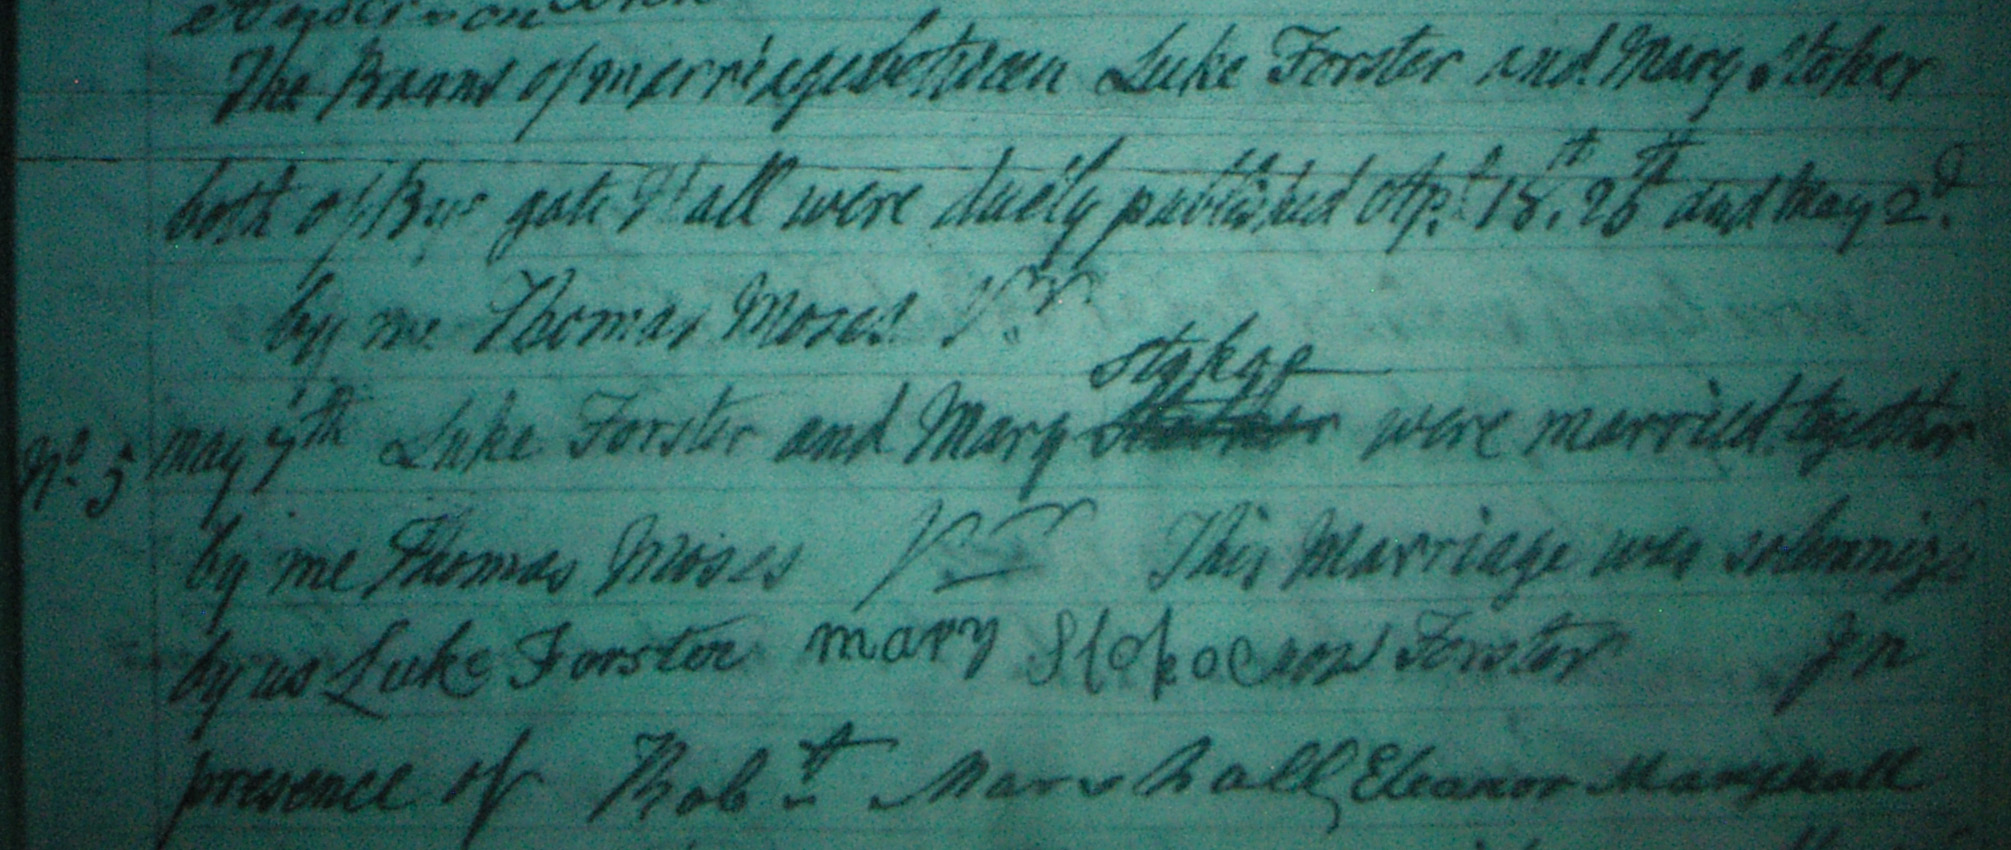 The Banns of marriage between Luke Forster and Mary Stoker
both of Byr gate Hall were duely published Ap.l 18th, 25th and May 2d.
by me Thomas Moses V.r
Stokoe
No. 5 May 7th Luke Forster and Mary were married together
by me Thomas Moses V.r This Marriage was solemniz'd
by us Luke Forster mary Stokoe now Forster In
presence of Robt Marshall Eleanor Marshall